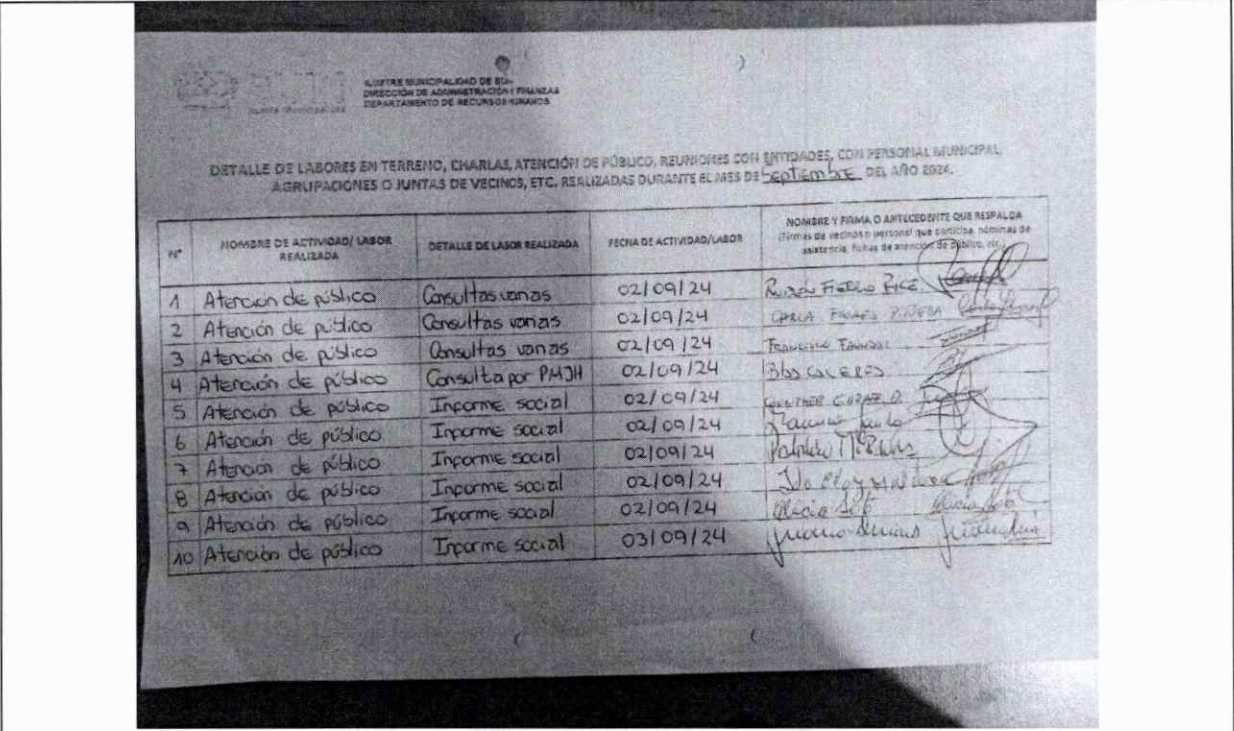 BUIN
ILUSTRE MUNICIPALIDAD
ILUSTRE MUNICIPALIDAD DE BUIN
DIRECCIÓN DE ADMINISTRACIÓN Y FINANZAS
DEPARTAMENTO DE RECURSOS HUMANOS
DETALLE DE LABORES EN TERRENO, CHARLAS, ATENCIÓN DE PÚBLICO, REUNIONES CON ENTIDADES, CON PERSONAL MUNICIPAL,
AGRUPACIONES O JUNTAS DE VECINOS, ETC, REALIZADAS DURANTE EL MES DE Septiembre DEL AÑO 2024.
N° NOMBRE DE ACTIVIDAD/ LABOR REALIZADA DETALLE DE LABOR REALIZADA FECHA DE ACTIVIDAD/LABOR NOMBRE Y FIRMA O ANTECEDENTE QUE RESPALDA
(Firmas de vecinos o personal que participa, nóminas de
asistencia, fichas de atención de público, etc.)
1 Atención de público Consultas varias 02/09/24
2 Atención de público Consultas varias 02/09/24 CARLA
3 Atención de público Consultas varias 02/09/24 FRANCISCO
4 Atención de público Consulta por PMJH 02/09/24 CACERES
5 Atención de público Informe social 02/09/24
6 Atención de público Informe social 02/09/24
7 Atención de público Informe social 02/09/24
8 Atención de público Informe social 02/09/24
9 Atención de público Informe social 02/09/24 Alicia
10 Atención de público Informe social 03/09/24